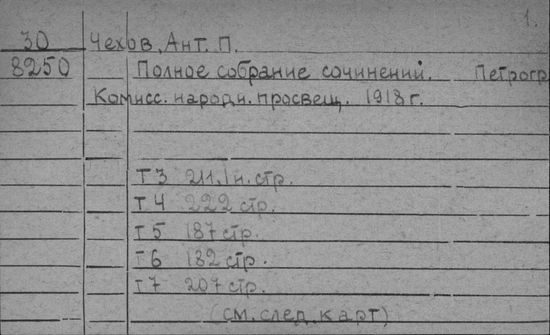 1.
30 Чехов, Ант. П.
8250 Полное собрание сочинений. Петрогр
Комисс. народн. просвещ. 1918 г.
Т 3 211, 1 н. стр.
Т 4 222 стр.
Т 5 187 стр.
Т 6 182 стр.
Т 7 207 стр.
(см. след. карт)